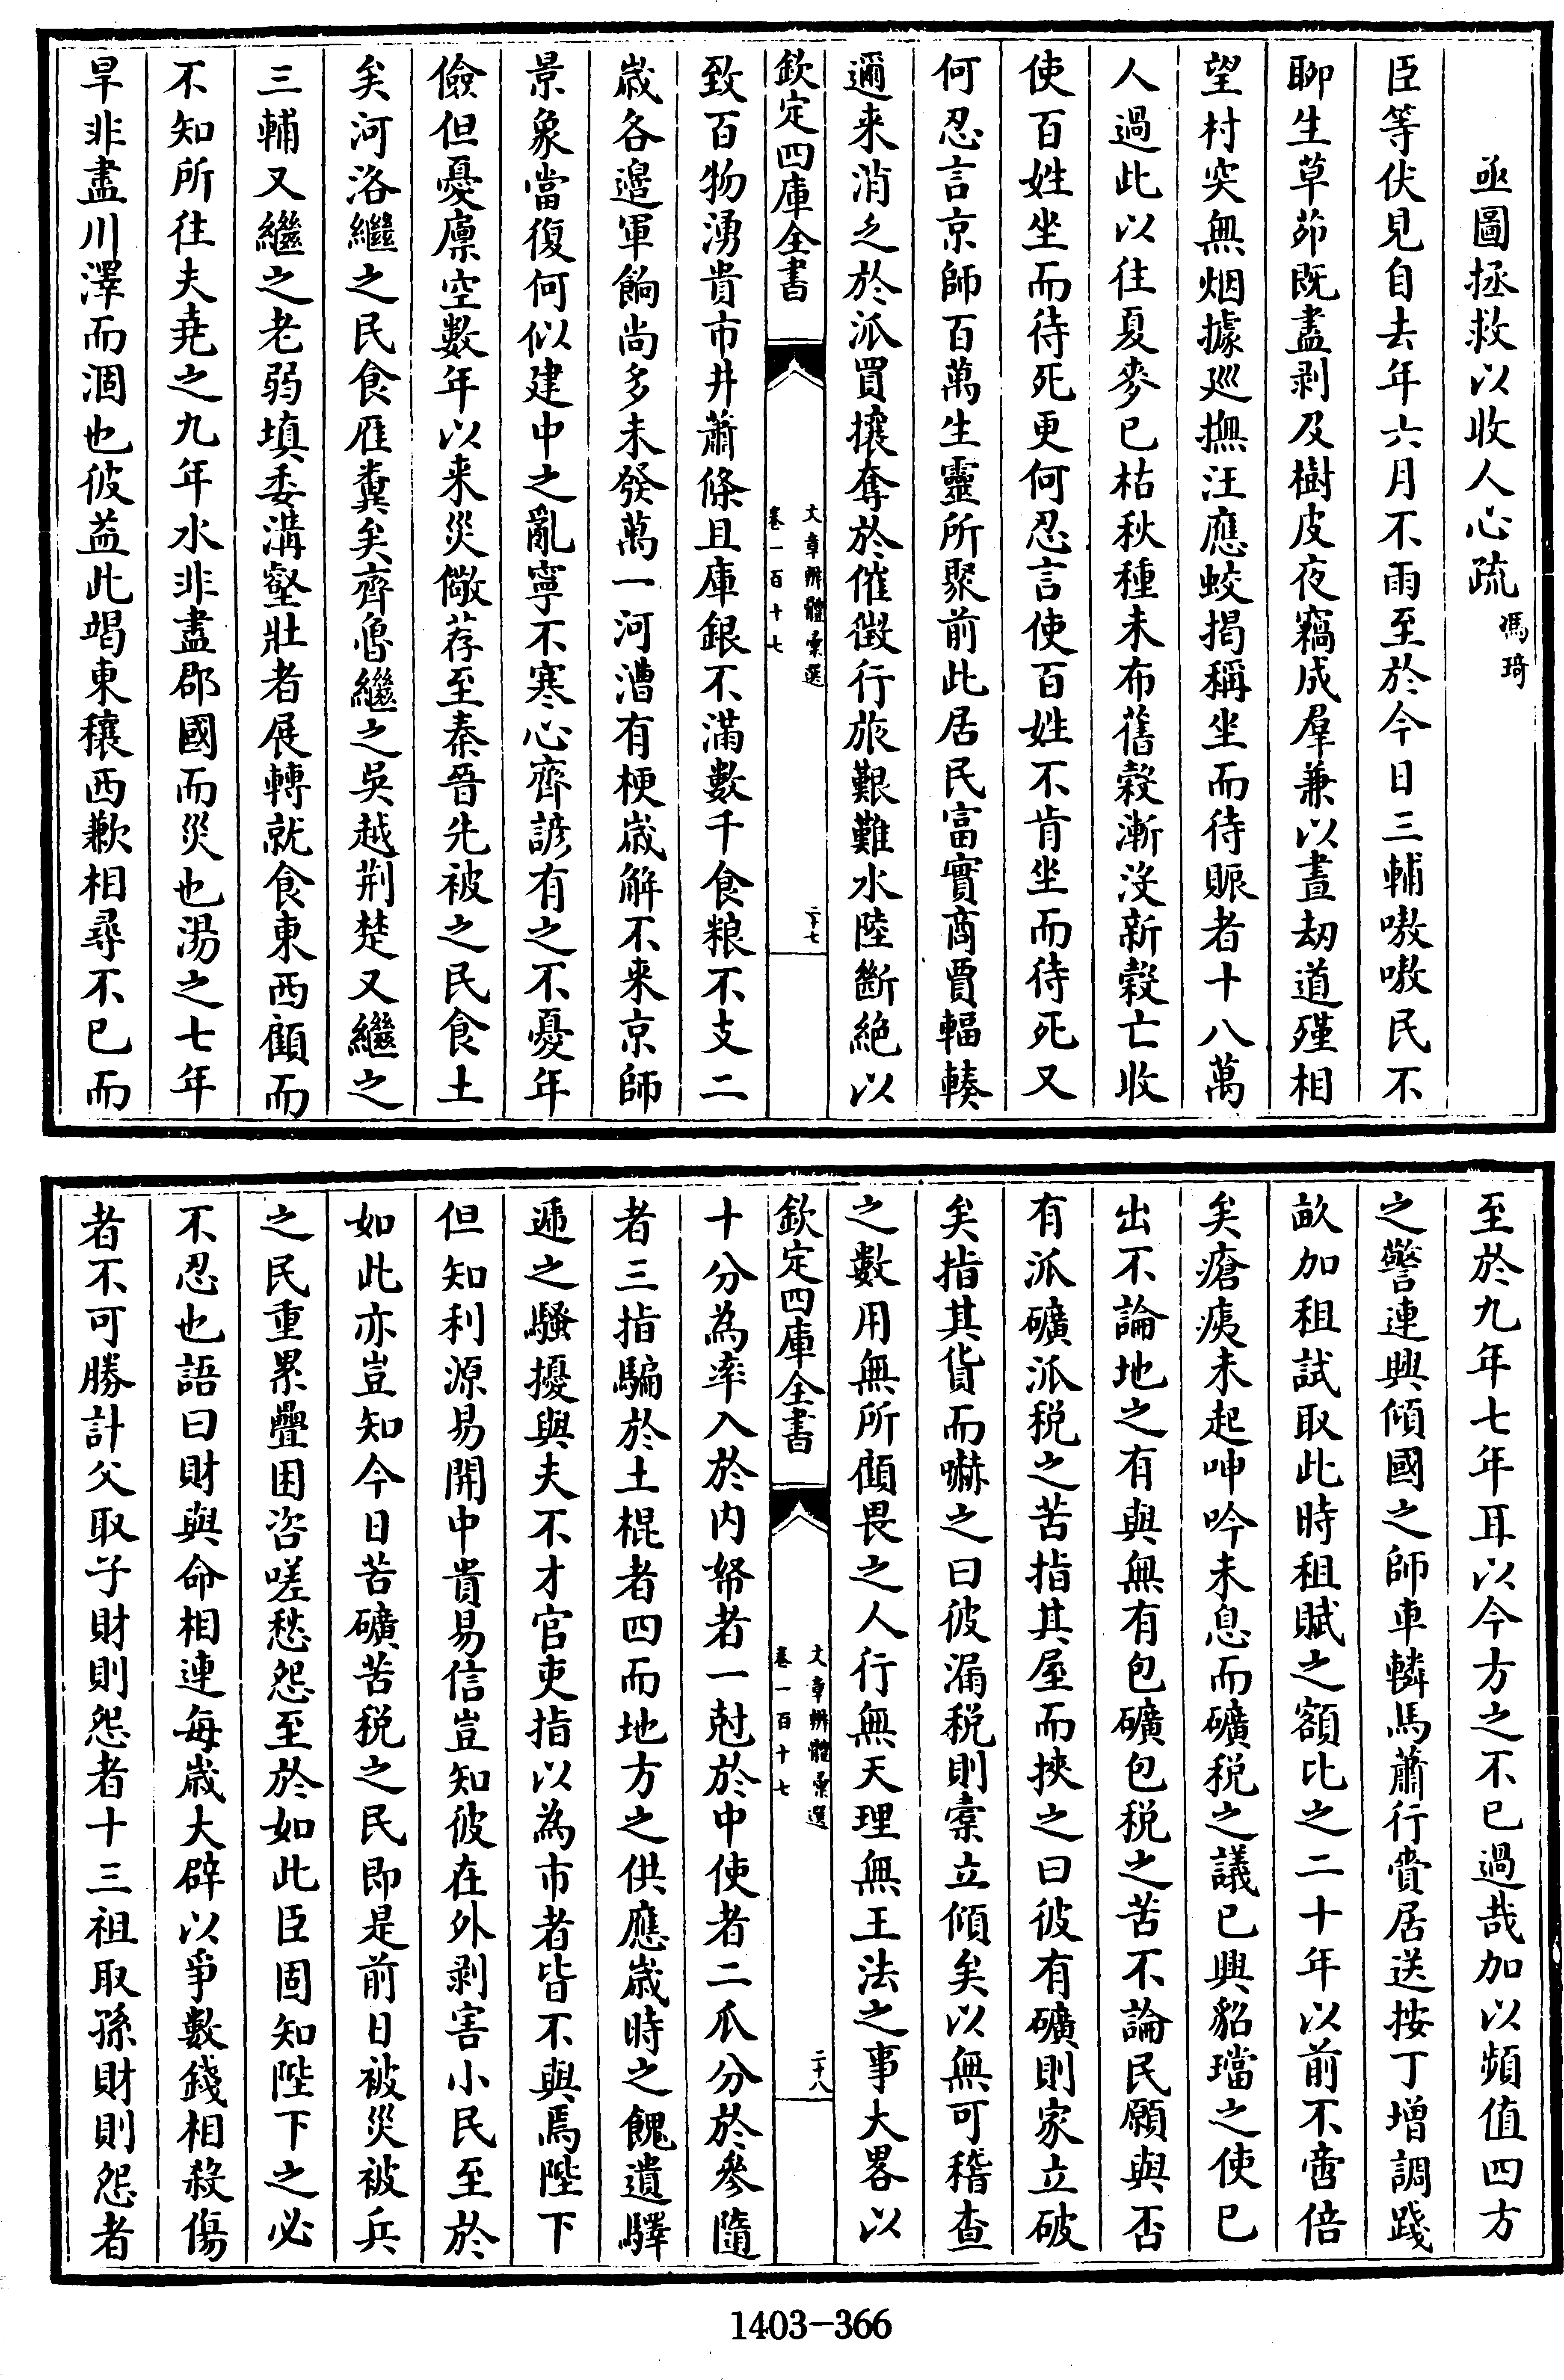 亟圖拯救以收人心疏 馮琦
臣等伏見自去年六月不雨至於今日三輔嗷嗷民不
聊生草茆既盡剥及樹皮夜竊成羣兼以晝刼道殣相
望村突無烟據巡撫汪應蛟揭稱坐而待賑者十八萬
人過此以往夏麥已枯秋種未布舊穀漸沒新穀亡收
使百姓坐而待死更何忍言使百姓不肯坐而待死又
何忍言京師百萬生靈所聚前此居民富實商賈輻輳
邇来消乏於派買攘奪於催徴行旅艱難水陸斷絶以
欽定四庫全書 文章辨體彚選 卷一百十七 二十七
致百物湧貴市井蕭條且庫銀不滿數千食粮不支二
歳各邉軍餉尚多未發萬一河漕有梗歳解不来京師
景象當復何似建中之亂寧不寒心齊諺有之不憂年
儉但憂廪空數年以来災儆荐至秦晉先被之民食土
矣河洛繼之民食雁糞矣齊魯繼之吳越荆楚又繼之
三輔又繼之老弱填委溝壑壯者展轉就食東西顧而
不知所往夫堯之九年水非盡郡國而災也湯之七年
旱非盡川澤而涸也彼益此竭東穰西歉相尋不已而
至於九年七年耳以今方之不已過哉加以頻值四方
之警連興傾國之師車轔馬蕭行賫居送按丁增調踐
畝加租試取此時租賦之額比之二十年以前不啻倍
矣瘡痍未起呻吟未息而礦税之議已興貂璫之使已
出不論地之有與無有包礦包税之苦不論民願與否
有派礦派税之苦指其屋而挾之曰彼有礦則家立破
矣指其貨而嚇之曰彼漏税則橐立傾矣以無可稽查
之數用無所顧畏之人行無天理無王法之事大畧以
欽定四庫全書 文章辨體彚選 卷一百十七 二十八
十分為率入於内帑者一尅於中使者二瓜分於參隨
者三指騙於土棍者四而地方之供應歳時之餽遺驛
逓之騷擾與夫不才官吏指以為市者皆不與焉陛下
但知利源易開中貴易信豈知彼在外剥害小民至於
如此亦豈知今日苦礦苦税之民即是前日被災被兵
之民重累疊困咨嗟愁怨至於如此臣固知陛下之必
不忍也語曰財與命相連每歳大辟以爭數錢相殺傷
者不可勝計父取子財則怨者十三祖取孫財則怨者
1403-366